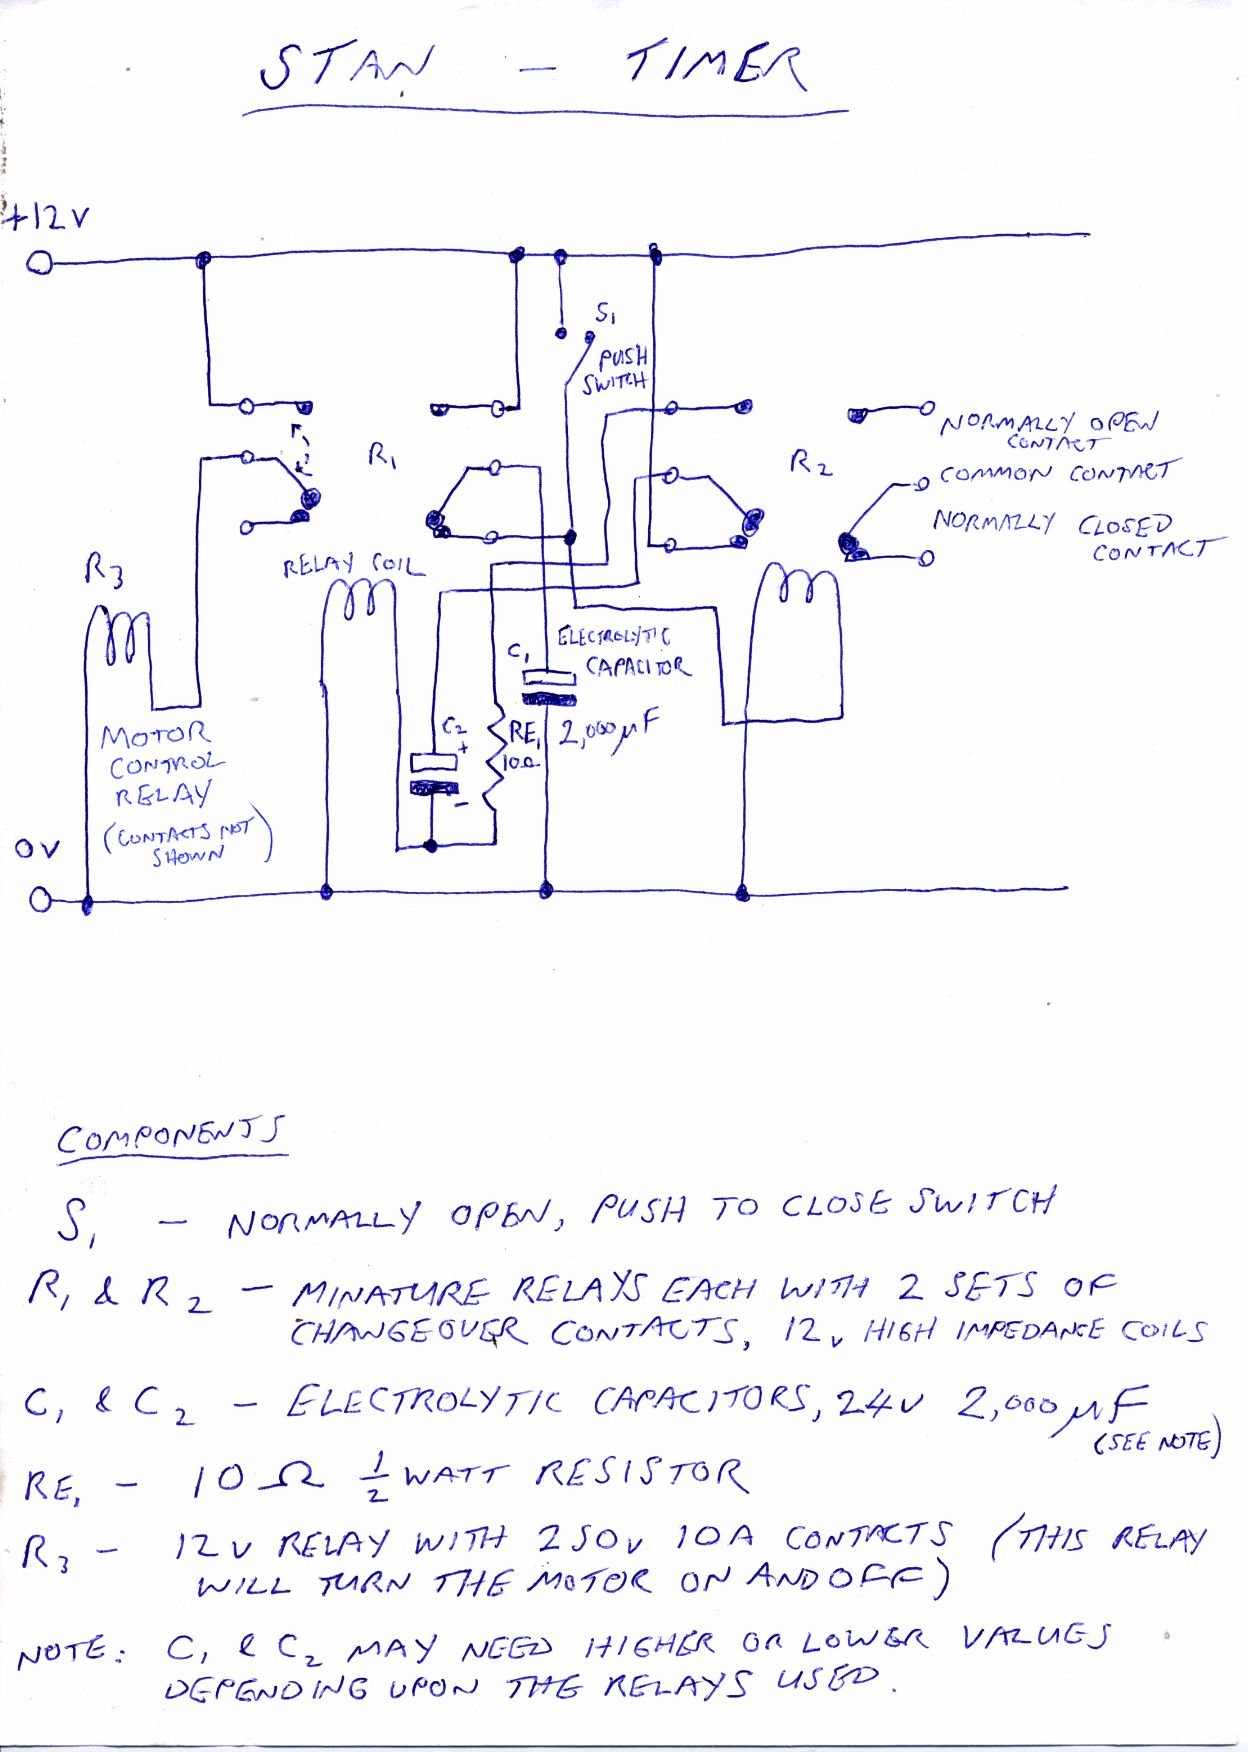 STAN - TIMER
+12V
S1
PUSH
SWITCH
R1
R2
NORMALLY OPEN
CONTACT
COMMON CONTACT
NORMALLY CLOSED
CONTACT
R3
RELAY COIL
C1
ELECTROLYTIC
CAPACITOR
2,000µF
C2
+
-
RE1
10Ω
MOTOR
CONTROL
RELAY
(CONTACTS NOT
SHOWN)
0V
COMPONENTS
S1 - NORMALLY OPEN, PUSH TO CLOSE SWITCH
R1 & R2 - MINATURE RELAYS EACH WITH 2 SETS OF
CHANGEOVER CONTACTS, 12v HIGH IMPEDANCE COILS
C1 & C2 - ELECTROLYTIC CAPACITORS, 24V 2,000µF
(SEE NOTE)
RE1 - 10Ω 1/2 WATT RESISTOR
R3 - 12V RELAY WITH 250v 10A CONTACTS (THIS RELAY
WILL TURN THE MOTOR ON AND OFF)
NOTE: C1 & C2 MAY NEED HIGHER OR LOWER VALUES
DEPENDING UPON THE RELAYS USED.